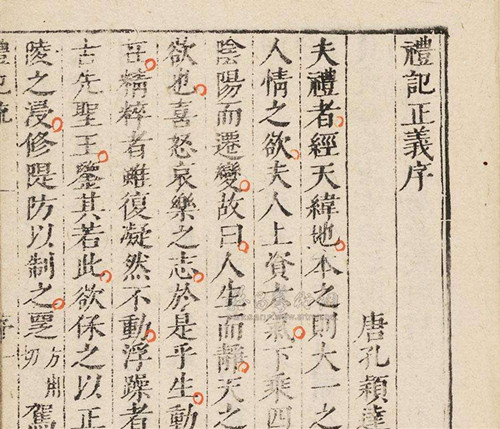 禮記正義序
唐孔穎達
夫禮者經天緯地本之則大一之
人情之欲夫人上資六氣下乘四
陰陽而遷變故曰人生而靜天之
欲也喜怒哀樂之志於是乎生動
精粹者雖復凝然不動浮躁者
古先聖王鑒其若此欲保之以正
陵之浸修隄防以制之覂方用切駕
禮記疏